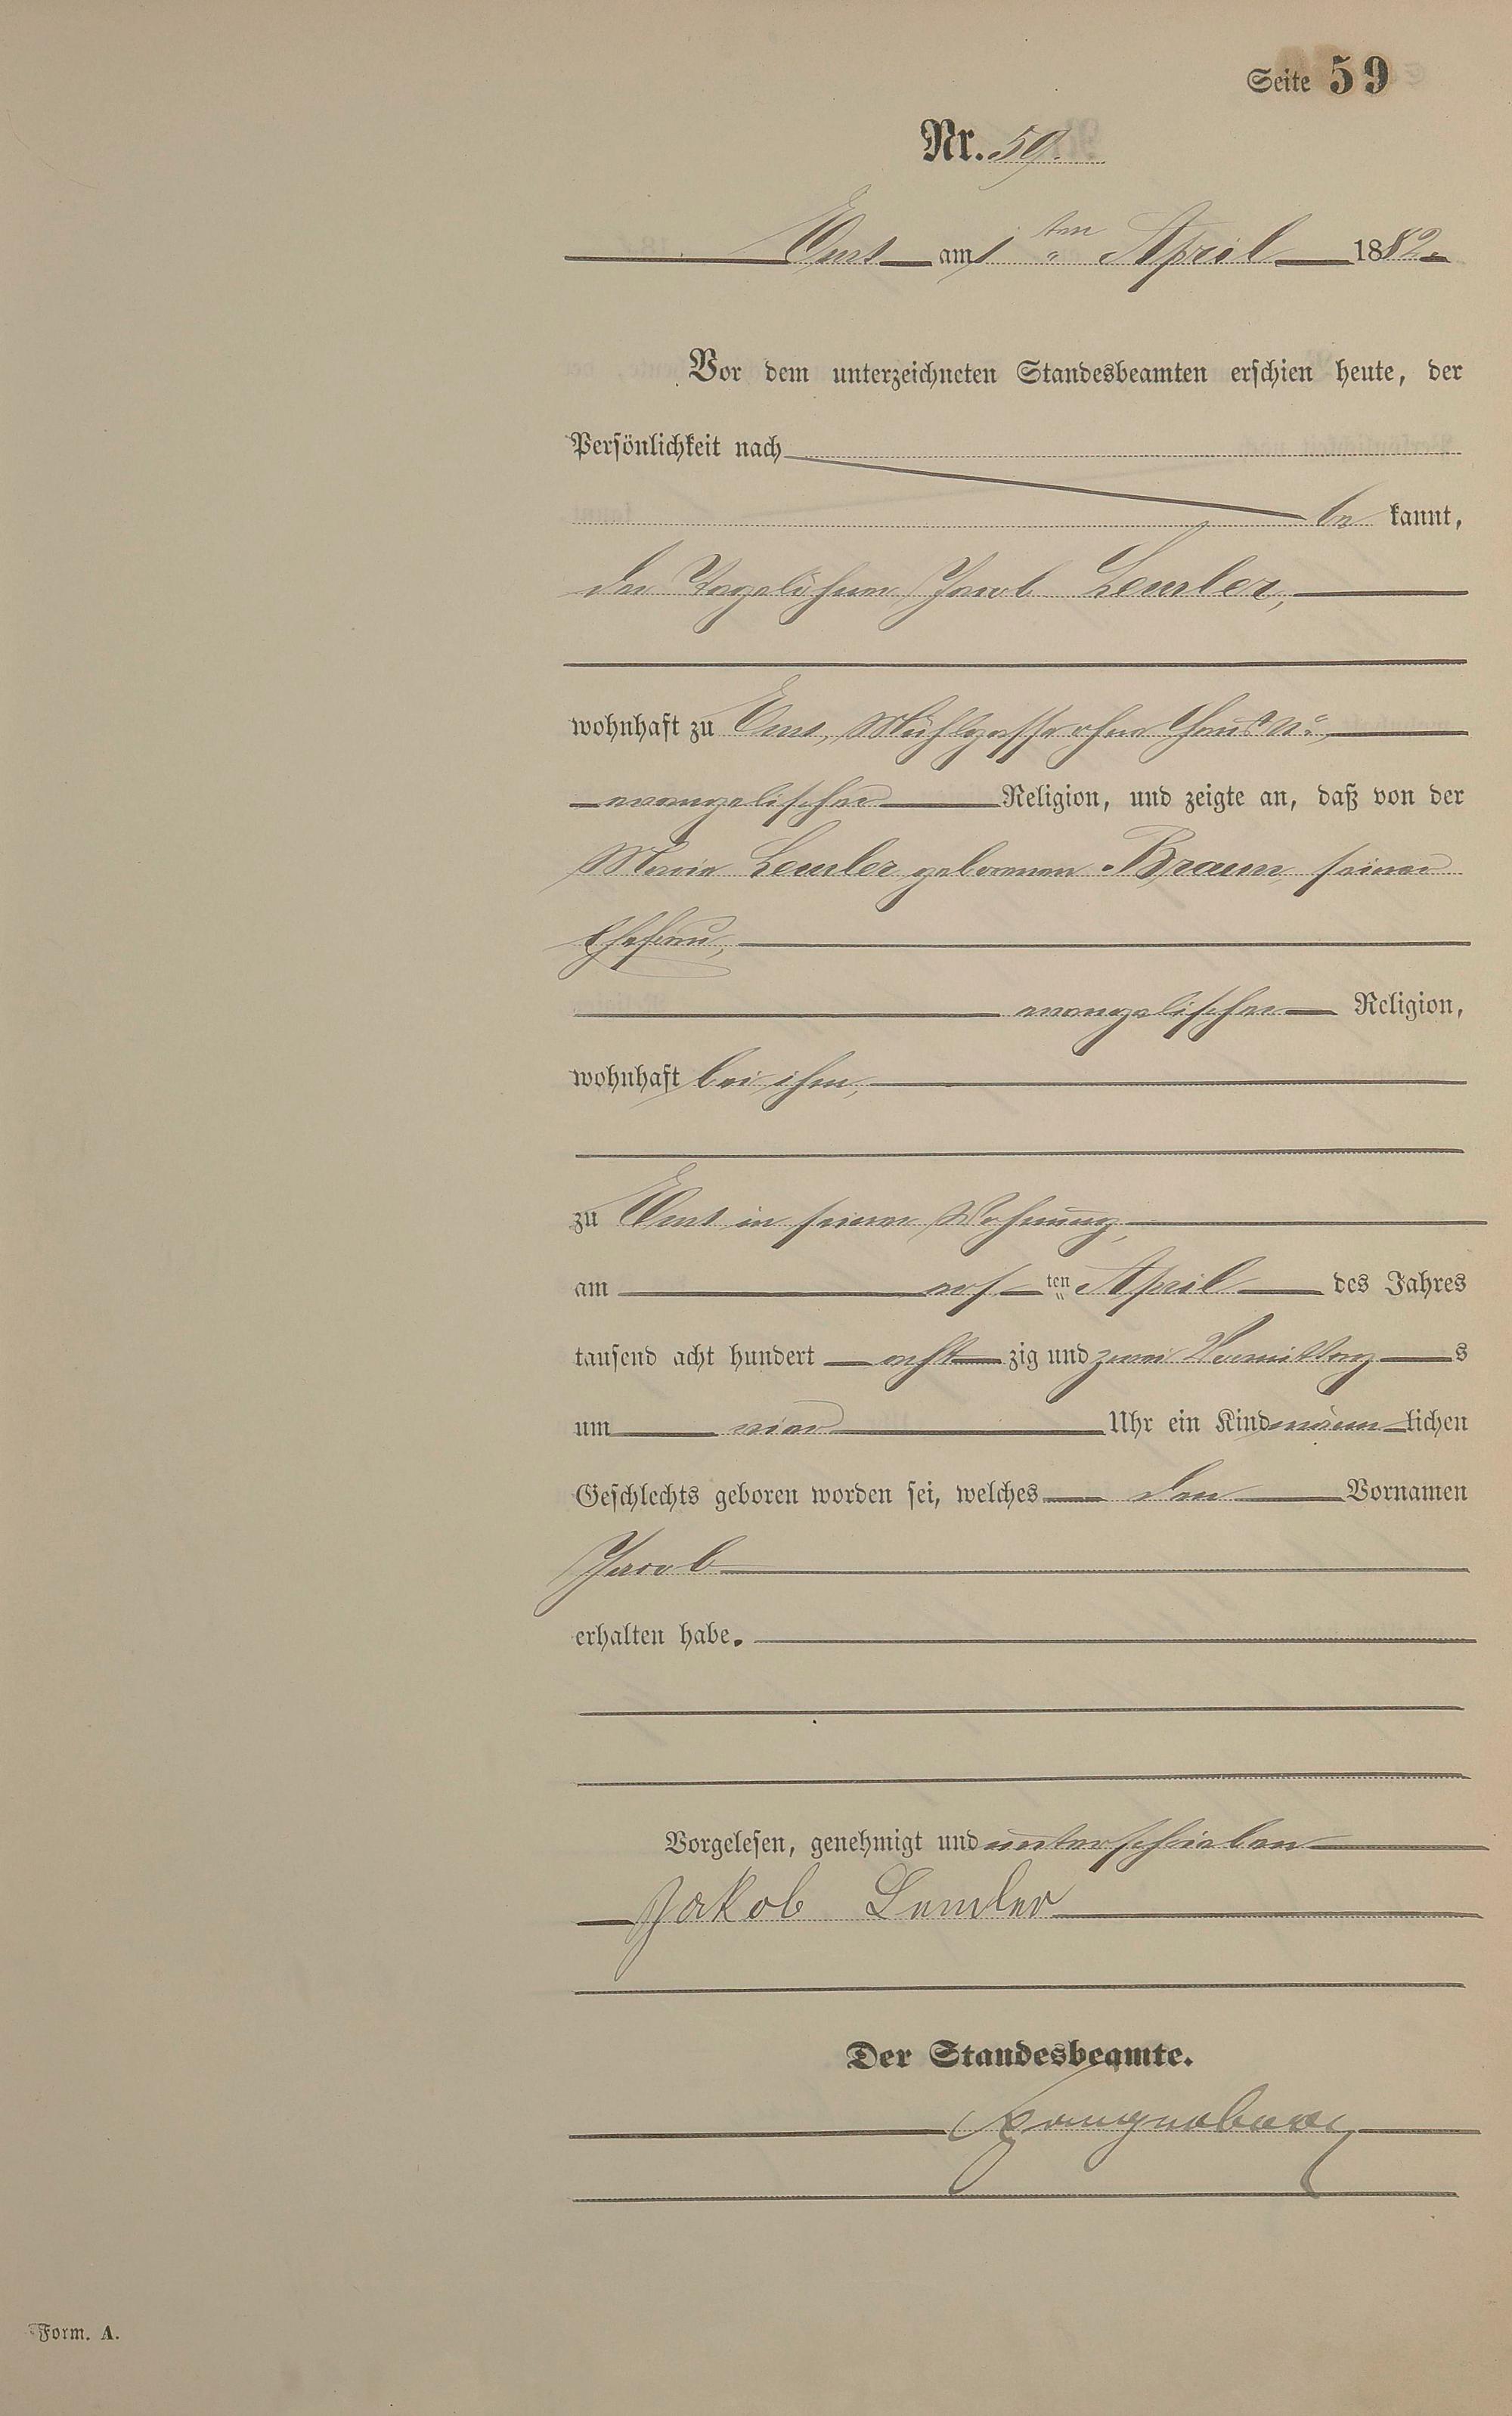 Seite 59
Nr. 59.
Ems am 1ten April 1882.
Vor dem unterzeichneten Standesbeamten erschien heute, der
Persönlichkeit nach
be kannt,
der Tagelöhner Jacob Lemler,
wohnhaft zu Ems, Mühlgasse ohne Haus No.,
evangelischer Religion, und zeigte an, daß von der
Maria Lemler geborenen Braun, seiner
Ehefrau,
evangelischer Religion,
wohnhaft bei ihm,
zu Ems in seiner Wohnung,
am ersten April des Jahres
tausend acht hundert acht zig und zwei Vormittags
um vier Uhr ein Kind männlichen
Geschlechts geboren worden sei, welches den Vornamen
Jacob
erhalten habe.
Vorgelesen, genehmigt und unterschrieben
Jakob Lemler
Der Standesbeamte.
Form. A.